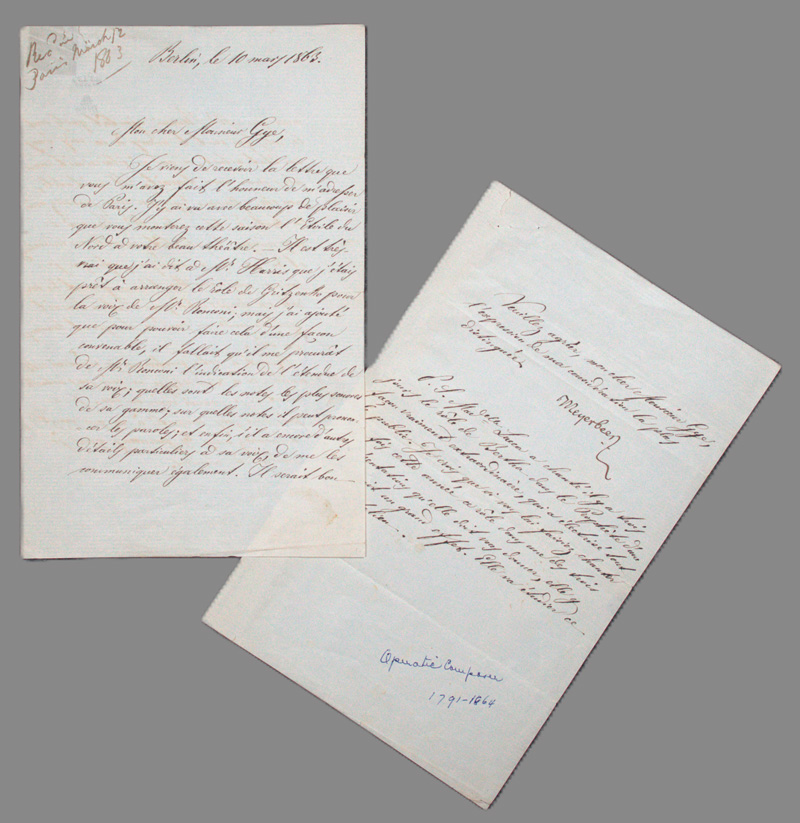 Rec^d in
Paris March 12
1863
Berlin, le 10 mars 1863.
Mon cher Monsieur Gye,
Je viens de recevoir la lettre que
vous m'avez fait l'honneur de m'adresser
de Paris. J'y ai vu avec beaucoup de plaisir
que vous monterez cette saison l'Etoile du
Nord à votre beau théâtre. — Il est très
vrai que j'ai dit à Mr. Harris que j'étais
prêt à arranger le rôle de Gritzenko pour
la voix de Mr. Ronconi; mais j'ai ajouté
que pour pouvoir faire cela d'une façon
convenable, il fallait qu'il me procurât
de Mr. Ronconi l'indication de l'étendue de
sa voix; quelles sont les notes les plus sonores
de sa gamme; sur quelles notes il peut pronon-
cer les paroles; et enfin, s'il a encore d'autres
détails particuliers à sa voix, de me les
communiquer également. Il serait bon
Veuillez agréer, mon cher Monsieur Gye,
l'expression de ma considération la plus
distinguée
Meyerbeer
P. S. Mad^elle Lucca a chanté il y a trois
jours le rôle de Berthe dans le Prophète d'une
façon vraiment extraordinaire, qui a électrisé tout
le public. Je crois que si vous lui faisiez chanter
cette année ce rôle dans une des trois
qu'elle doit vous donner, elle y
un grand effet. Elle va étudier ce